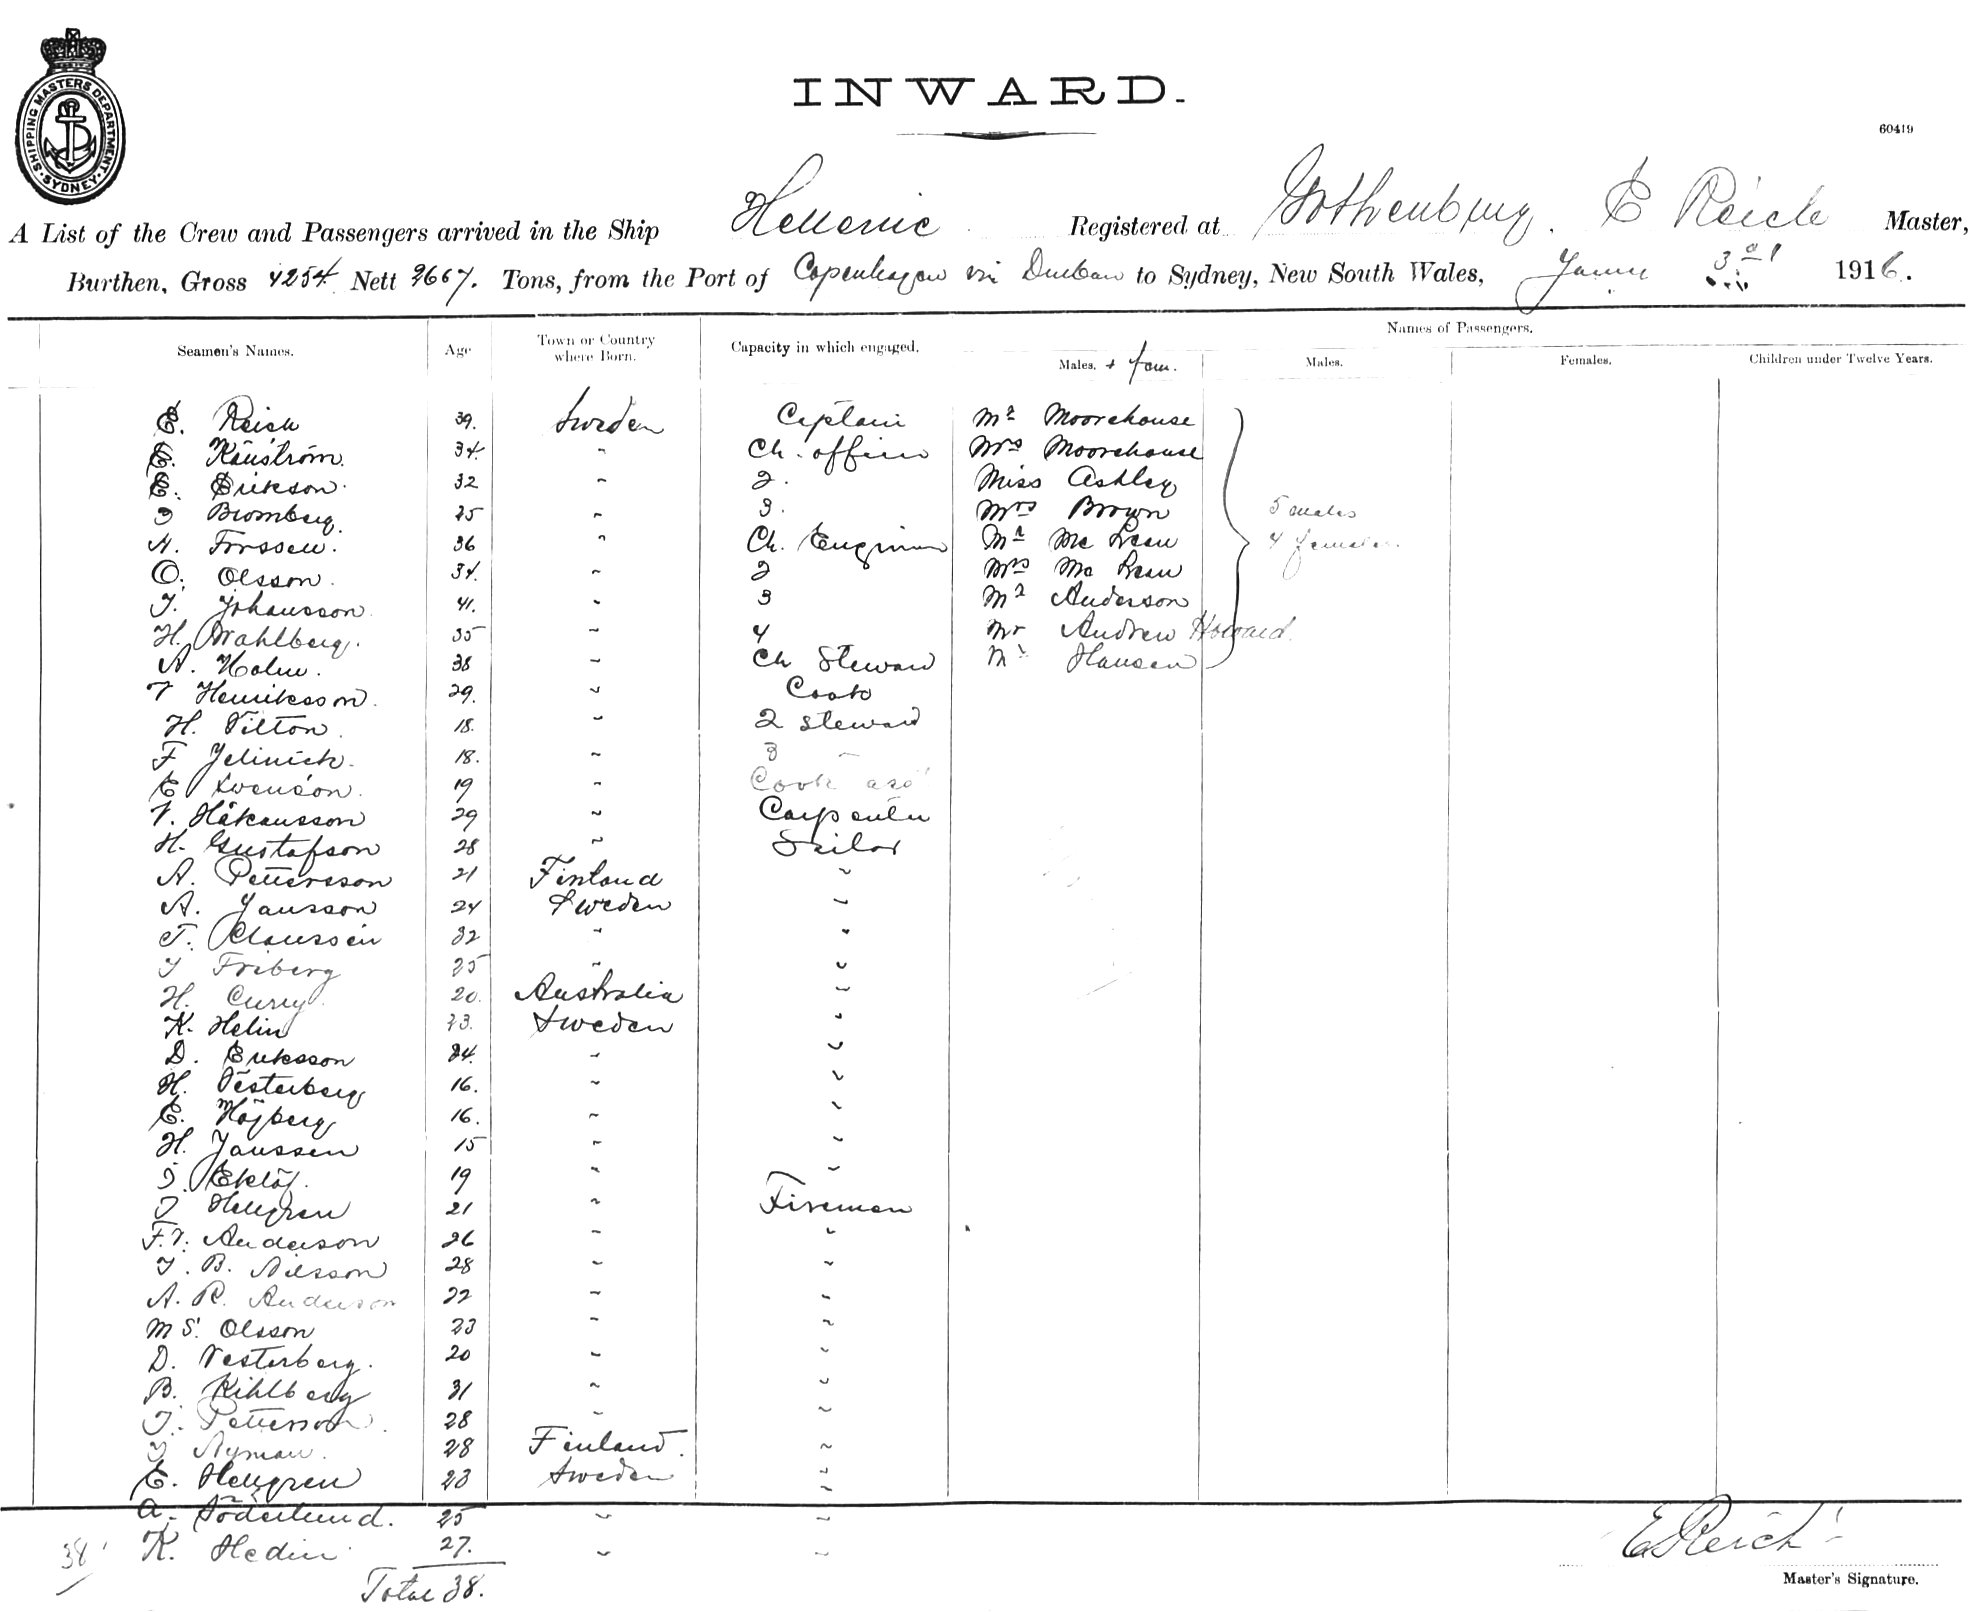 INWARD.
60419
SHIPPING MASTERS DEPARTMENT. SYDNEY.
A List of the Crew and Passengers arrived in the Ship Hellenic Registered at Gothenburg. E Reich Master,
Burthen, Gross 4254 Nett 2667. Tons, from the Port of Copenhagen via Durban to Sydney, New South Wales, 3rd 1916.
Names of Passengers.
Seamen's Names. Age Town or Country where Born. Capacity in which engaged. Males. + fem. Males. Females. Children under Twelve Years.
E. Reich 39. Sweden Captain Mr Moorehouse
E. 34. " Ch. officer Mrs Moorehouse
E. Erikson. 32 " 2. Miss Ashley
Bromberg. 25 " 3. Mrs Brown 5 males
A. Forssell. 36 " Ch. Engineer Mr Mc Lean 4 females.
O. Olsson. 34. " 2 Mrs Mc Lean
J. Johansson. 41. " 3 Mr Anderson
H. Wahlberg. 35 " 4 Mr Andrew Howard.
A. Holm. 38 " Ch Steward Mr Hansen
V Henriksson. 29. " Cook
H. Tilton. 18. " 2 Steward
F Jelinich. 18. " 3 "
E Svenson. 19 " Cook ass
V. Håkansson 29 " Carpenter
H. Gustafson 28 " Sailor
A. Pettersson 21 Finland "
A. Jansson 24 Sweden "
T. Claussen 32 " "
J Friberg 25 " "
H. Curry. 20. Australia "
K. Helin 23. Sweden "
D. Eriksson 24. " "
H. Vesterberg 16. " "
E. Höjberg 16. " "
H. Janssen 15 " "
J. Eklöf. 19 " "
J Hellgren 21 " Firemen
F.V. Anderson 26 " "
J. B. Nilsson 28 " "
A. R. Anderson 22 " "
M S. Olsson 23 " "
D. Vesterberg. 20 " "
B. Kihlberg 31 " "
J. Petterson. 28 " "
J Nyman. 28 Finland. "
E. Hellgren 23 Sweden "
A. Söderlund. 25 " "
38 K. Hedin 27. " " E Reich
Total 38.
Master's Signature.